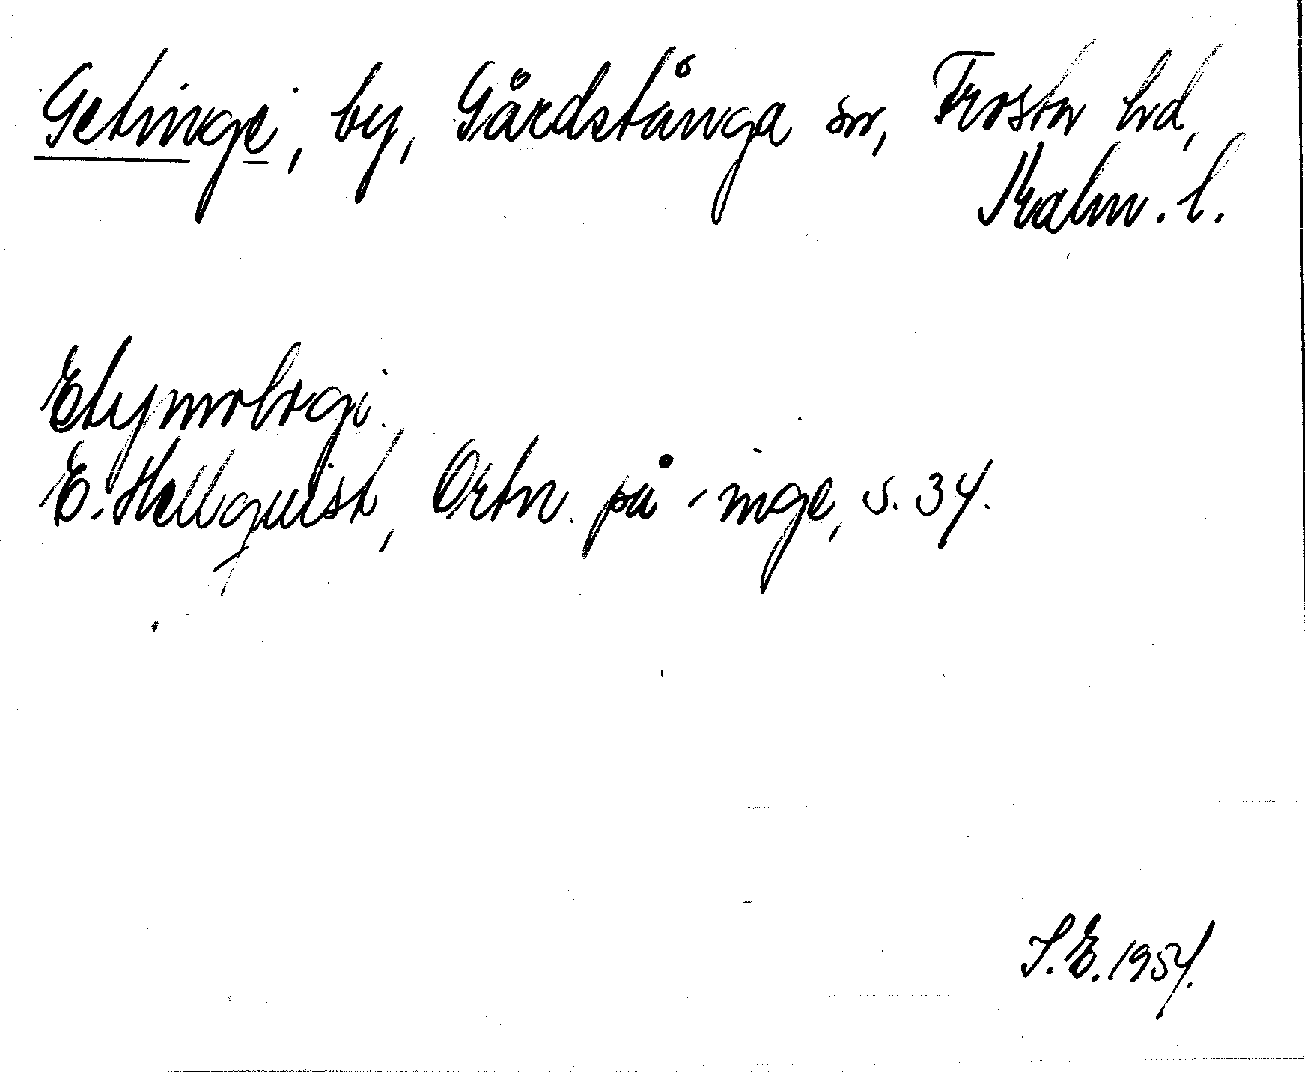 Getinge, by, Gårdstånga sn, Frosta hd,
Malm. l.
Etymologi.
E. Hellquist, Ortn. på -inge, s. 34.
S. E. 1954.